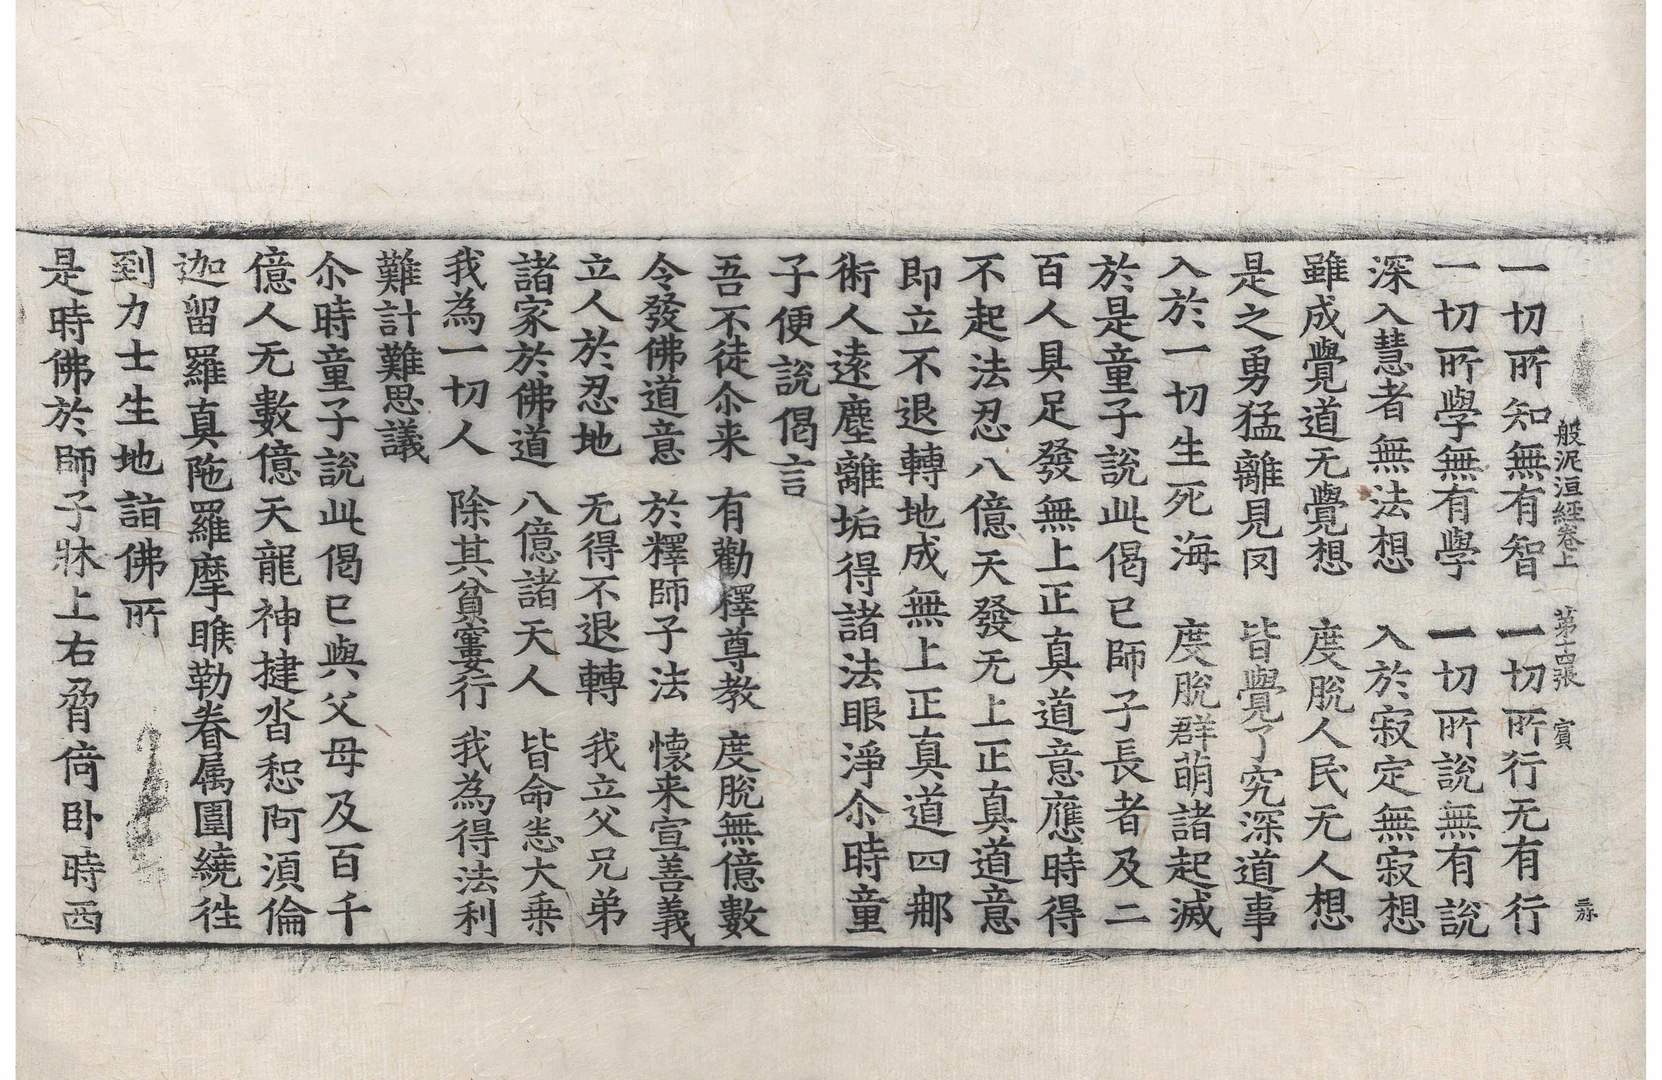 般泥洹經卷上　第十四張　賓
一切所知無有智　一切所行无有行
一切所學無有學　一切所說無有說
深入慧者無法想　入於寂定無寂想
雖成覺道无覺想　度脫人民无人想
是之勇猛離見罔　皆覺了究深道事
入於一切生死海　度脫群萌諸起滅
於是童子說此偈已師子長者及二
百人具足發無上正真道意應時得
不起法忍八億天發无上正真道意
即立不退轉地成無上正真道四那
術人遠塵離垢得諸法眼淨尒時童
子便說偈言
吾不徒尒来　有勸釋尊教　度脫無億數
令發佛道意　於釋師子法　懷来宣善義
立人於忍地　无得不退轉　我立父兄弟
諸家於佛道　八億諸天人　皆命恙大乗
我為一切人　除其貧窶行　我為得法利
難計難思議
尒時童子說此偈已與父母及百千
億人无數億天龍神揵沓惒阿湏倫
迦留羅真陁羅摩睺勒眷属圍繞徃
到力士生地詣佛所
是時佛於師子牀上右脅倚卧時西